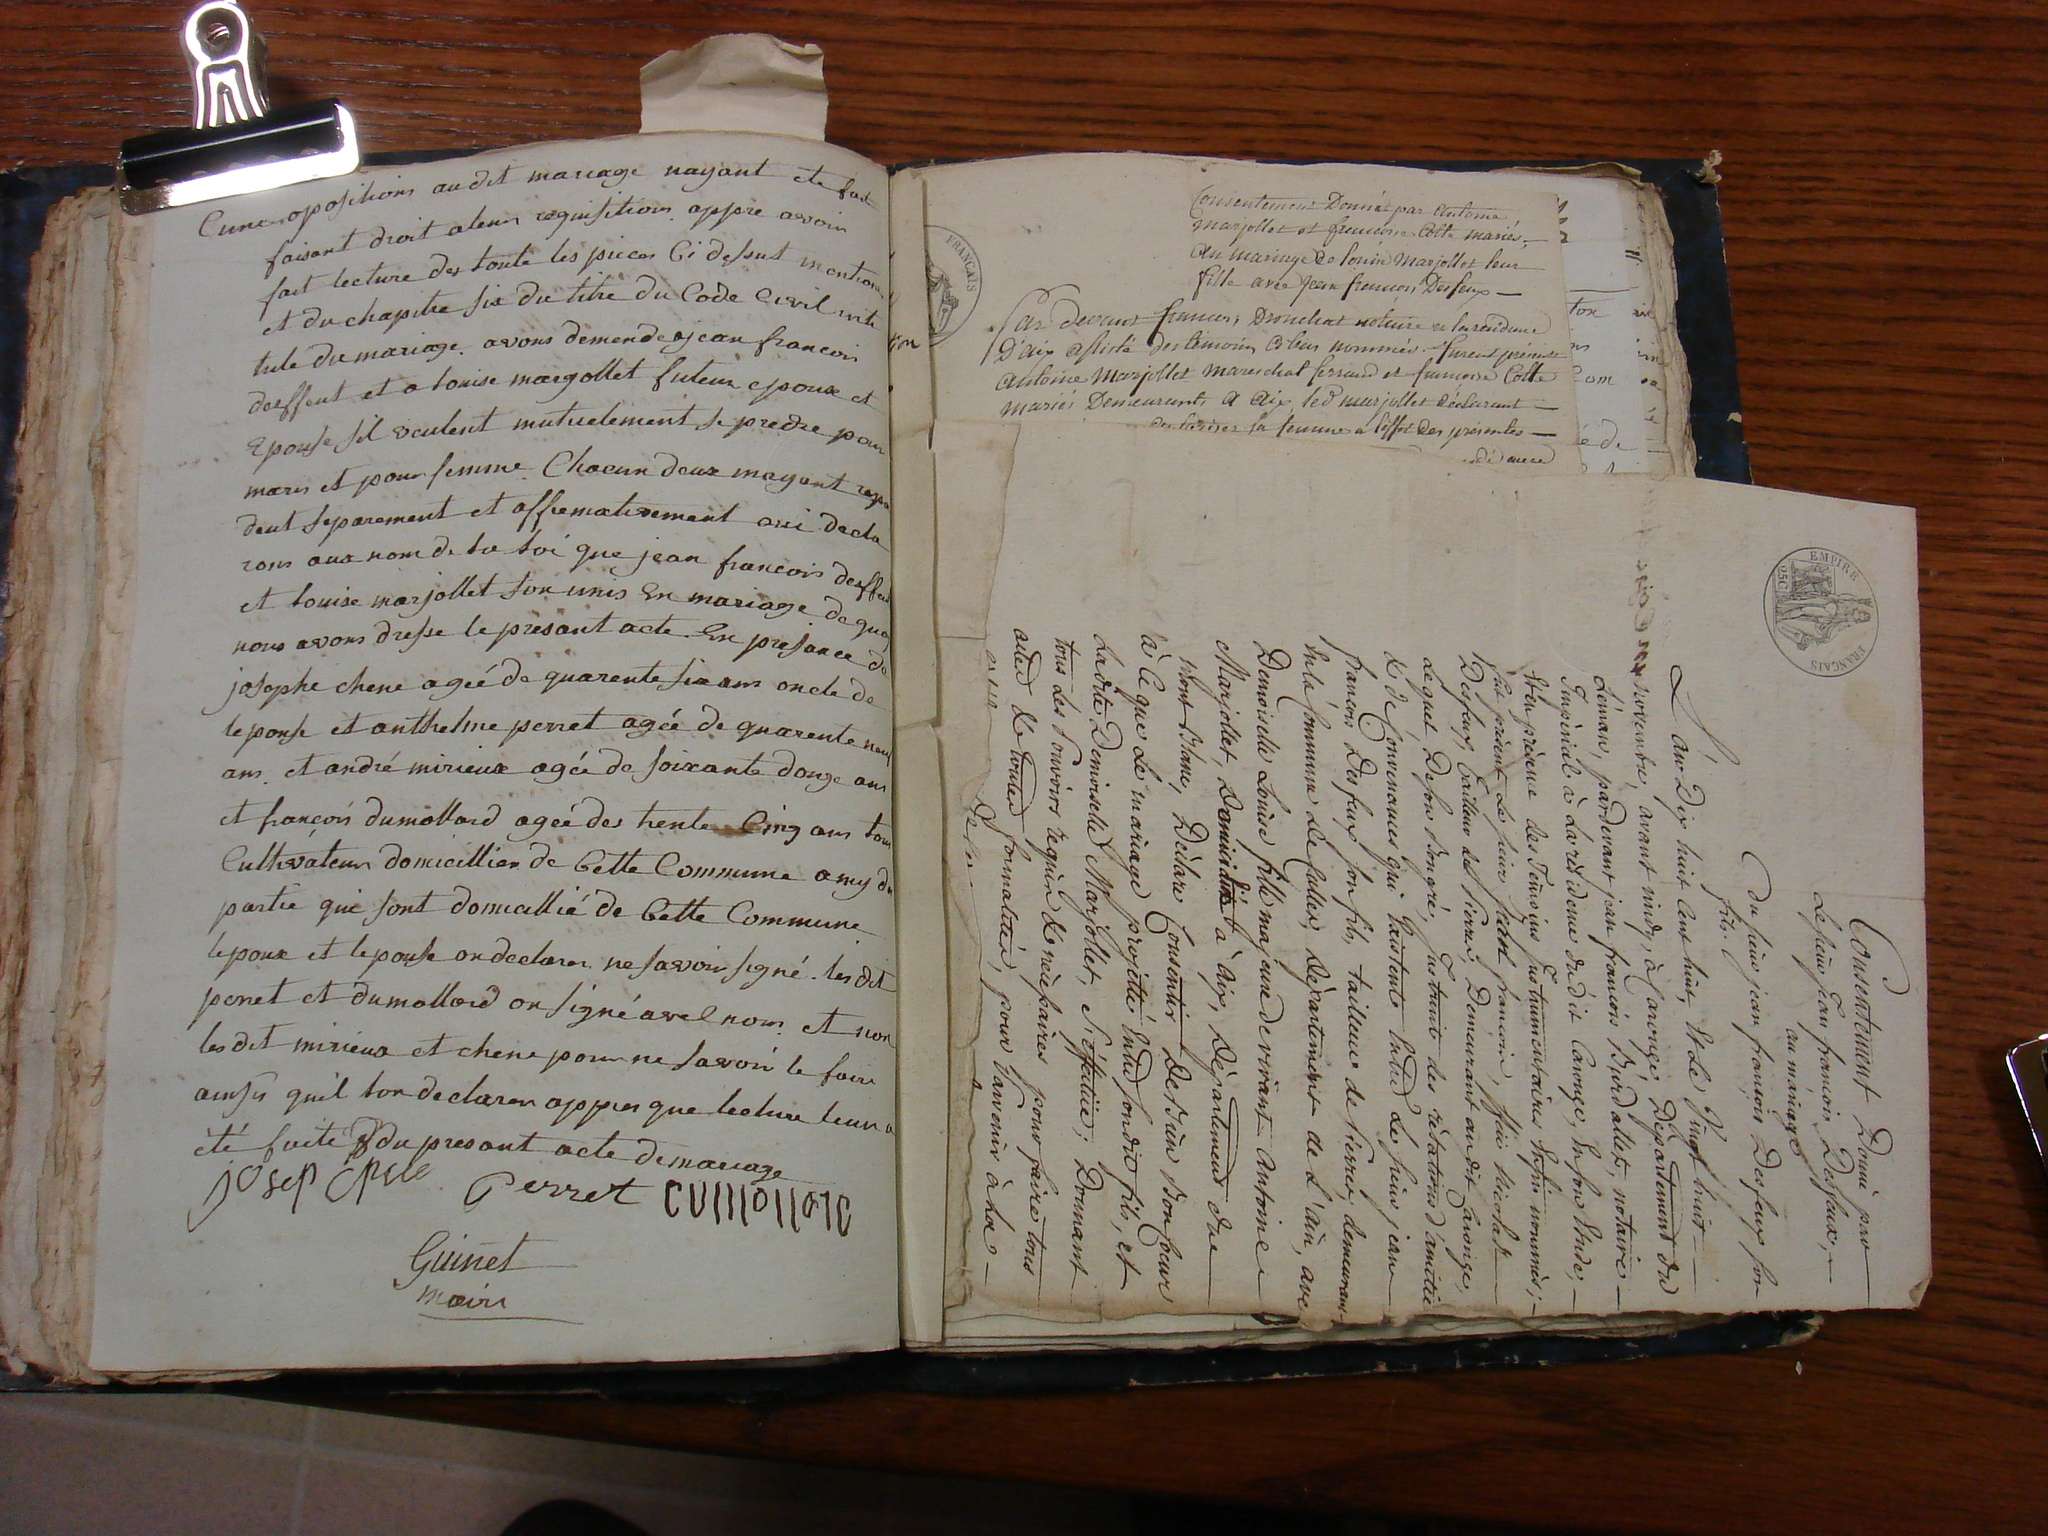 Cune opositions audit mariage nayant ete fait
faisant droit a leur requisition appre avoir
fait lecture des toute les pieces Ci dessut mention
et du chapitre six du titre du Code Civil inti
tule du mariage. avons demende a jean francois
deffeut et a louise margollet futeur epoux et
Epouse sil veulent mutuelement se predre pour
maris et pour femme. Chacun deux mayant repon
deut separement et affiematisement oui decla
rons aux nom de la loi que jean francois deffeu
et louise marjollet son unis En mariage de quoi
nous avons dresse le presant acte. En presance de
josephe chene agéé de quarente six ans oncle de
lepouse et anthelme perret agéé de quarente neuf
ans. et andré mirieux agéé de soixante douze ans
et françois dumollard agéé des trente Cinq ans tous
Cultivateurs domicillier de Cette Commune amy du
partie qui sont domicillié de Cette Commune
lepoux et lepouse on declarer ne savoir signé. les dit
perret et dumollard on signé avel nous et non
les dit mirieux et chene pour ne savoir le faire
ainsis quil lon declarer appres que lecture leur a
été faite du presant acte de mariage
josep
Perret
Guinet
maire
FRANÇAIS
Consentement Donné par Antoine
marjollet et francoise Cotte mariés
Au mariage de louise Marjollet leur
fille avec Jean francois Desfeux
Par devant francois Dronchat notaire a la residence
D'aix assisté des temoins Cy bas nommés furent présents
Antoine Marjollet Mareschal ferrand et francoise Cotte
mariés Demeurants a Aix, led marjollet déclarant
autoriser sa femme a l'effet des présentes
EMPIRE
25C
FRANÇAIS
Consentement Donné par
Le sieur Jean francois Desfeux,
au mariage
du sieur jean françois Desfeux son
fils.
L'an Dix huit Cent huit, Et Le Vingt huit
novembre, avant midy, à Carouge, Département du
Léman, pardevant jean francois Burdallet, notaire
Impérial à la résidence dudit Carouge, En son Etude,
Et En présence des Témoins Instrumentaires Enfin nommés;
fut présent Le sieur francois, feu nicolas
Desfeux, tailleur de Pierre, Demeurant audit Carouge,
Lequel De son bon gré, Instruit des rélations d'amitié
& de Convenances qui Existent Entre Le sieur jean
françois Desfeux son fils, tailleur de Pierre, demeurant
En la Commune de Culles, Département de L'ain, avec
Demoiselle Louise fille majeure de vivant Antoine
Marjollet, Domiciliée à Aix, Département du
Mont-Blanc, Déclare Consentir De Bien Bon Coeur
à Ce que Le mariage projetté Entre Sondit fils, et
Ladite Demoiselle Marjollet, S'effectue; Donnant
tous Les Pouvoirs requis & nécessaires pour faire tous
actes & toutes formalités, pour Parvenir à La